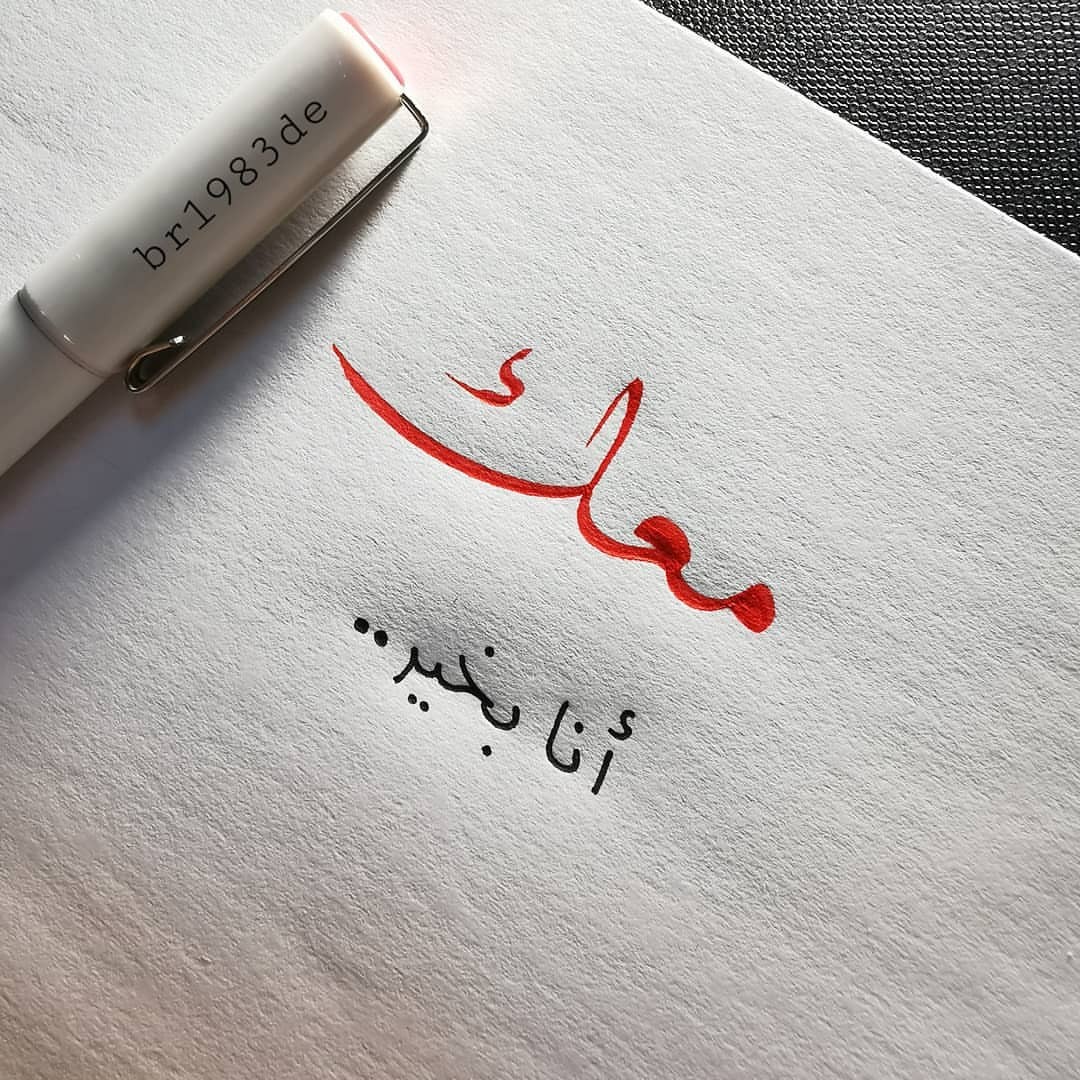 br1983de
معك
أنا بخير..